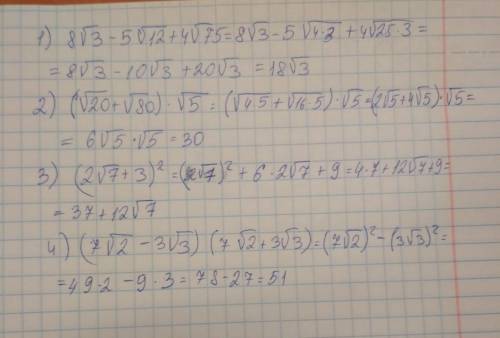 1) 8√3 - 5√12 + 4√75 = 8√3 - 5√4·3 + 4√25·3 =
= 8√3 - 10√3 + 20√3 = 18√3
2) (√20 + √80) · √5 = (√4·5 + √16·5) · √5 = (2√5 + 4√5) · √5 =
= 6√5 · √5 = 30
3) (2√7 + 3)² = (2√7)² + 6 · 2√7 + 9 = 4·7 + 12√7 + 9 =
= 37 + 12√7
4) (7√2 - 3√3) (7√2 + 3√3) = (7√2)² - (3√3)² =
= 49·2 - 9·3 = 78 - 27 = 51